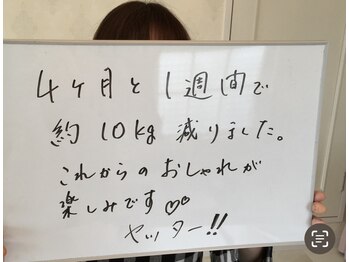 4ヶ月と1週間で
約10kg減りました。
これからのおしゃれが
楽しみです♡♡
ヤッター!!